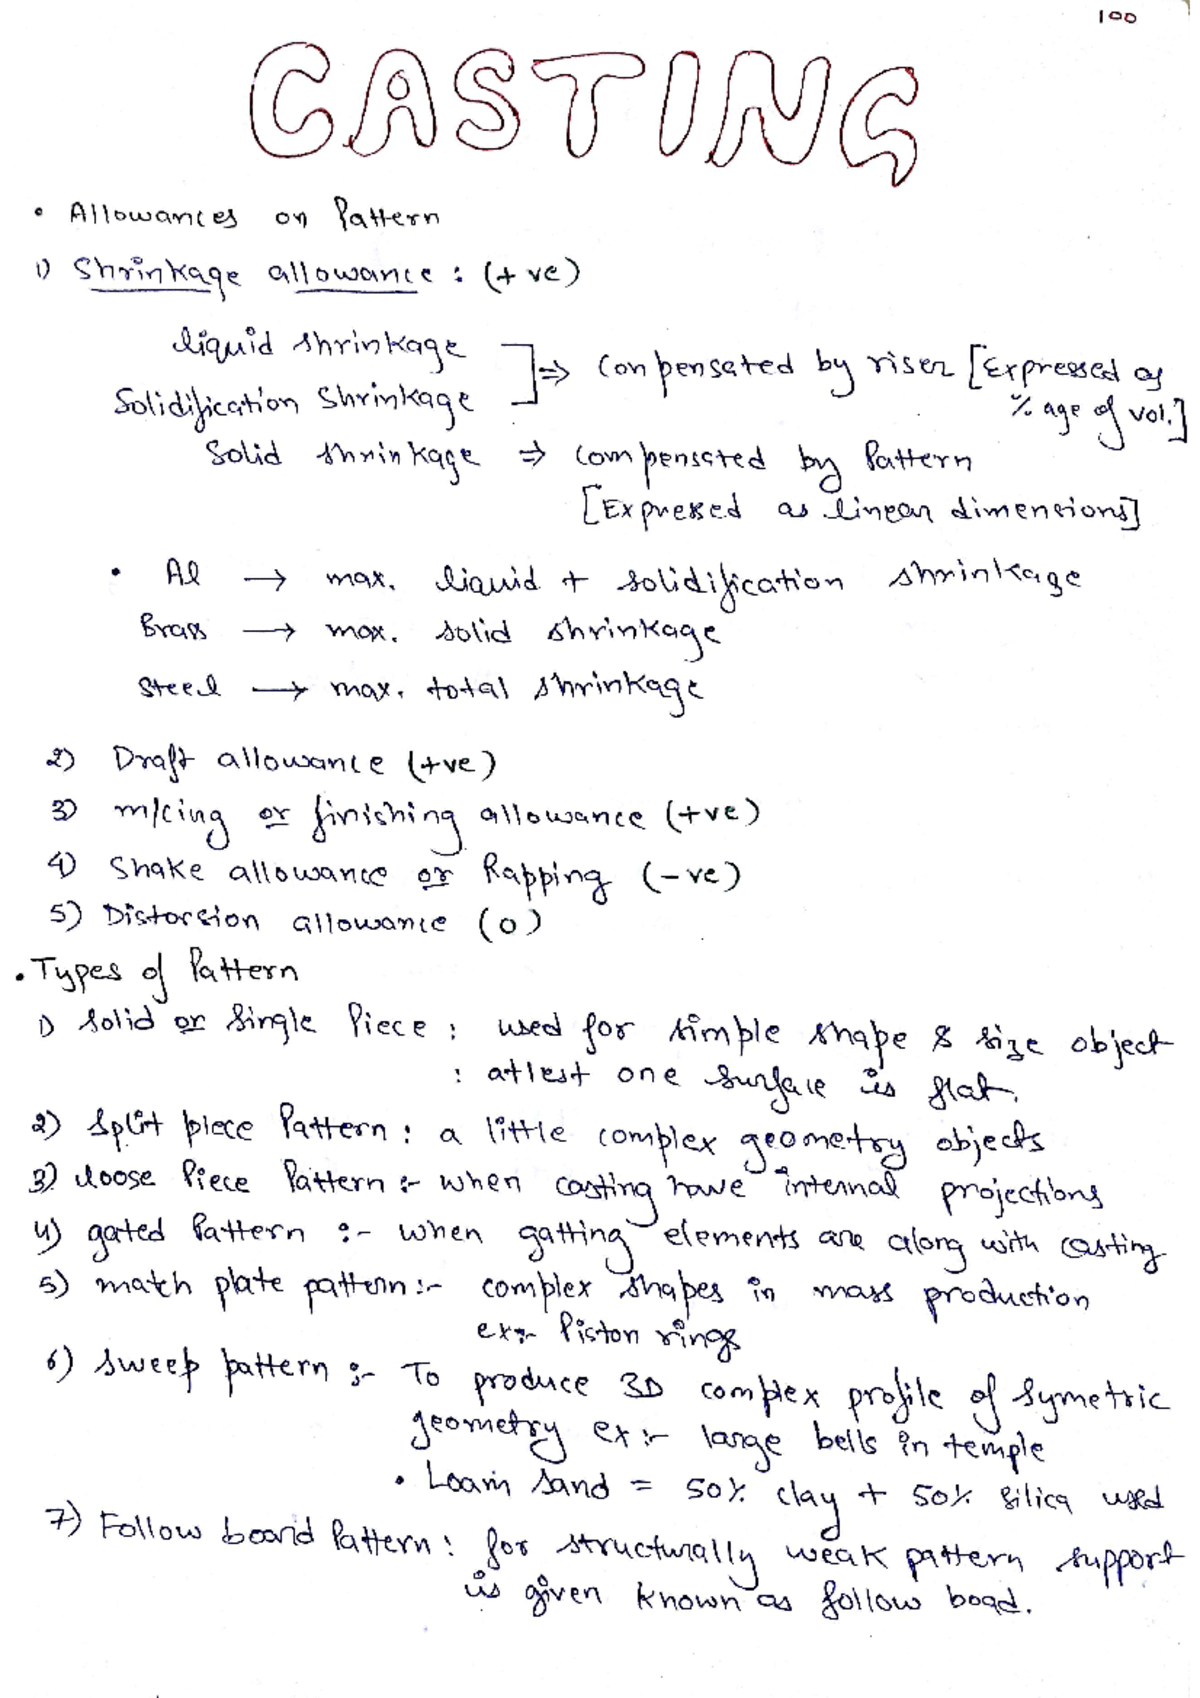 100
CASTING
• Allowances on Pattern
1) Shrinkage allowance : (+ve)
liquid shrinkage
Solidification Shrinkage ] ⇒ Conpensated by riser [Expressed as
% age of vol.]
Solid shrinkage ⇒ compensated by Pattern
[Expressed as linear dimensions]
• Al → max. liquid + solidification shrinkage
Brass → max. solid shrinkage
Steel → max. total shrinkage
2) Draft allowance (+ve)
3) m/cing or finishing allowance (+ve)
4) Shake allowance or Rapping (-ve)
5) Distorsion allowance (0)
• Types of Pattern
1) Solid or Single Piece : used for simple shape & size object
: atlest one surface is flat.
2) Split piece Pattern : a little complex geometry objects
3) loose Piece Pattern :- when casting have internal projections
4) gated Pattern :- when gatting elements are along with casting
5) match plate pattern :- complex shapes in mass production
ex:- Piston rings
6) Sweep pattern :- To produce 3D complex profile of Symetric
geometry ex:- large bells in temple
• Loam sand = 50% clay + 50% silica used
7) Follow board Pattern : for structurally weak pattern support
is given known as follow boad.